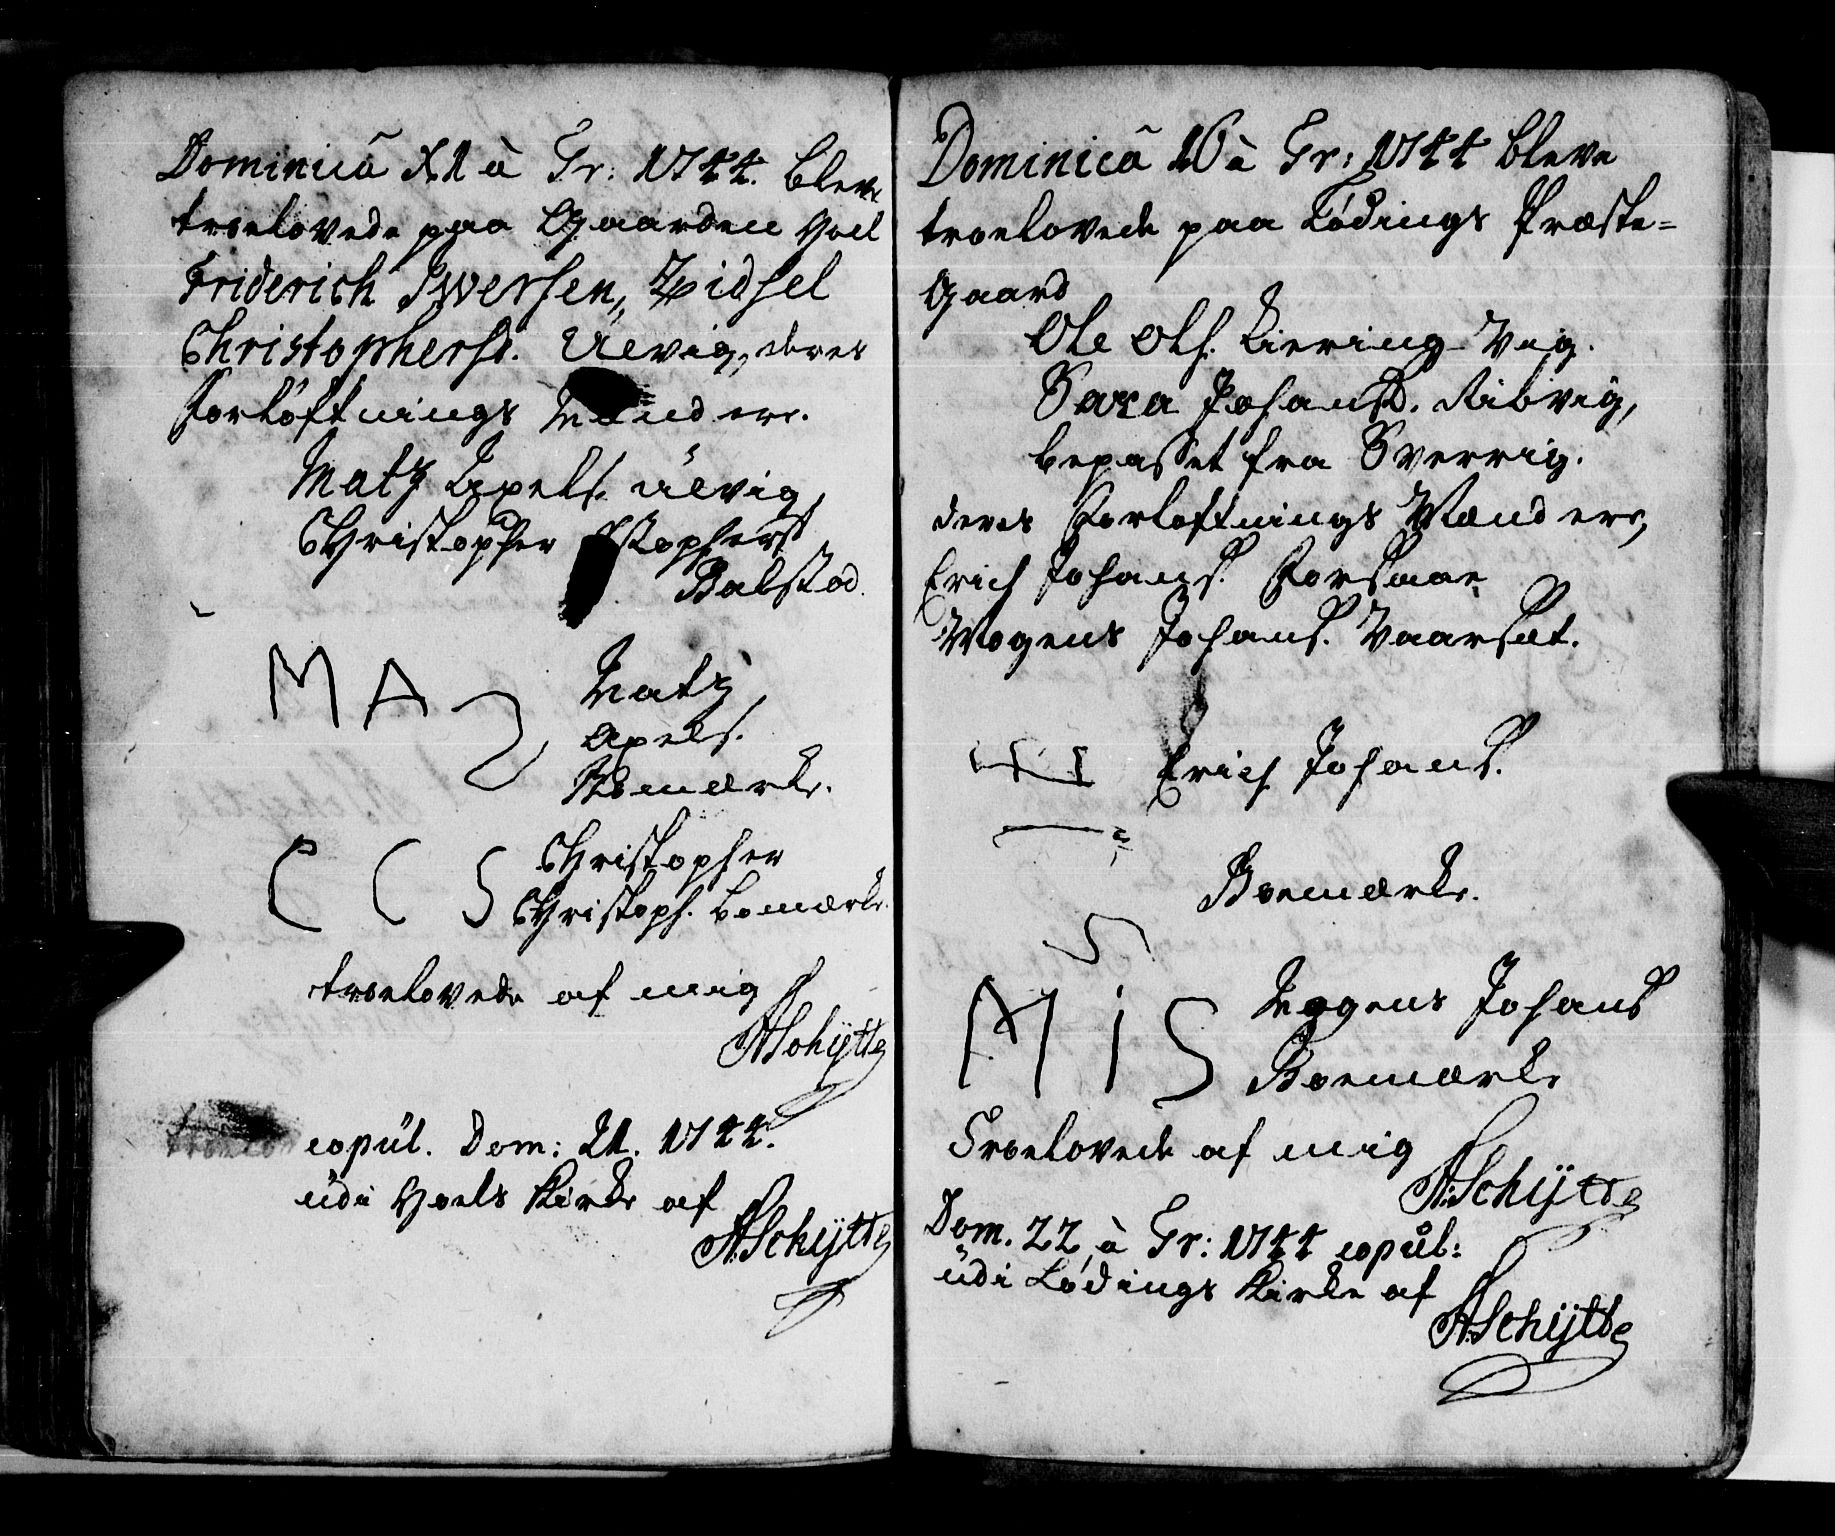 Dominicâ XI à Tr: 1744. bleve
troelovede paa Gaarden Hoel
Friderich Iwersen, Zidsel
Christophersd. Ulvig, deres
Forløftnings Mænd ere.
Matz Apels. Ulvig,
Christopher Christophers
Balstad.
M A S
Matz
Apels.
Bomærke.
C C S
Christopher
Christoph. bomærke.
troelovede af mig
ASchÿtte
copul. Dom: 21. 1744.
udi Hoels Kirke af
ASchÿtte
Dominicâ 16 à Tr: 1744 bleve
troelovede paa Lødings Præste-
Gaard
Ole Ols. Kiering-Vog.
Sara Johansd. Ribvig,
bepasset fra Sverrig.
deres Forløftnings Mænd ere,
Erich Johans. Forsaae
Mogens Johans. Vaarsæt.
Erich Johans.
Boemærke.
M I S
Mogens Johans
Boemærke
Troelovede af mig
ASchÿtte
Dom. 22 à Tr: 1744 copul:
udi Lødings Kirke af
ASchÿtte